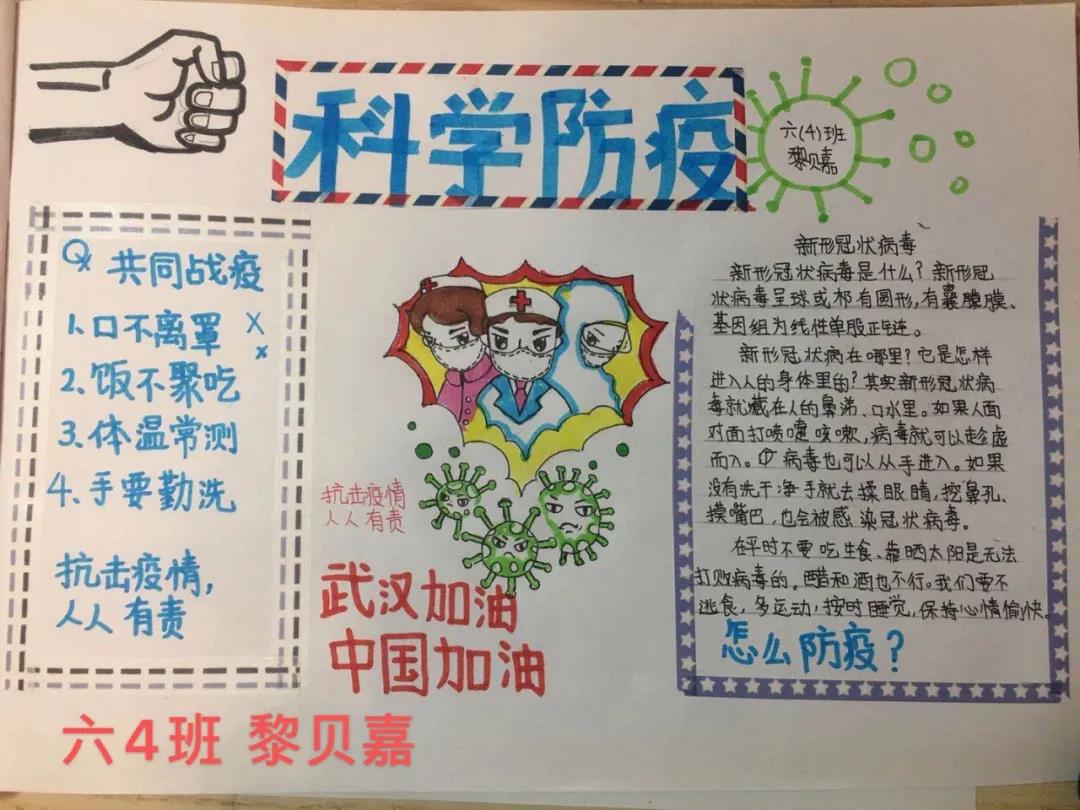 科学防疫
六(4)班
黎贝嘉
共同战疫
1.口不离罩
2.饭不聚吃
3.体温常测
4.手要勤洗
抗击疫情，
人人有责
抗击疫情
人人有责
武汉加油
中国加油
新形冠状病毒
新形冠状病毒是什么？新形冠
状病毒呈球或椭有圆形，有囊膜膜、
基因组为线性单股正链。
新形冠状病在哪里？它是怎样
进入人的身体里的？其实新形冠状病
毒就藏在人的鼻涕、口水里。如果人面
对面打喷嚏咳嗽，病毒就可以趁虚
而入。病毒也可以从手进入。如果
没有洗干净手就去揉眼睛，挖鼻孔、
摸嘴巴，也会被感染冠状病毒。
在平时不要吃生食、靠晒太阳是无法
打败病毒的。醋和酒也不行。我们要不
逃食，多运动，按时睡觉，保持心情愉快。
怎么防疫？
六4班 黎贝嘉